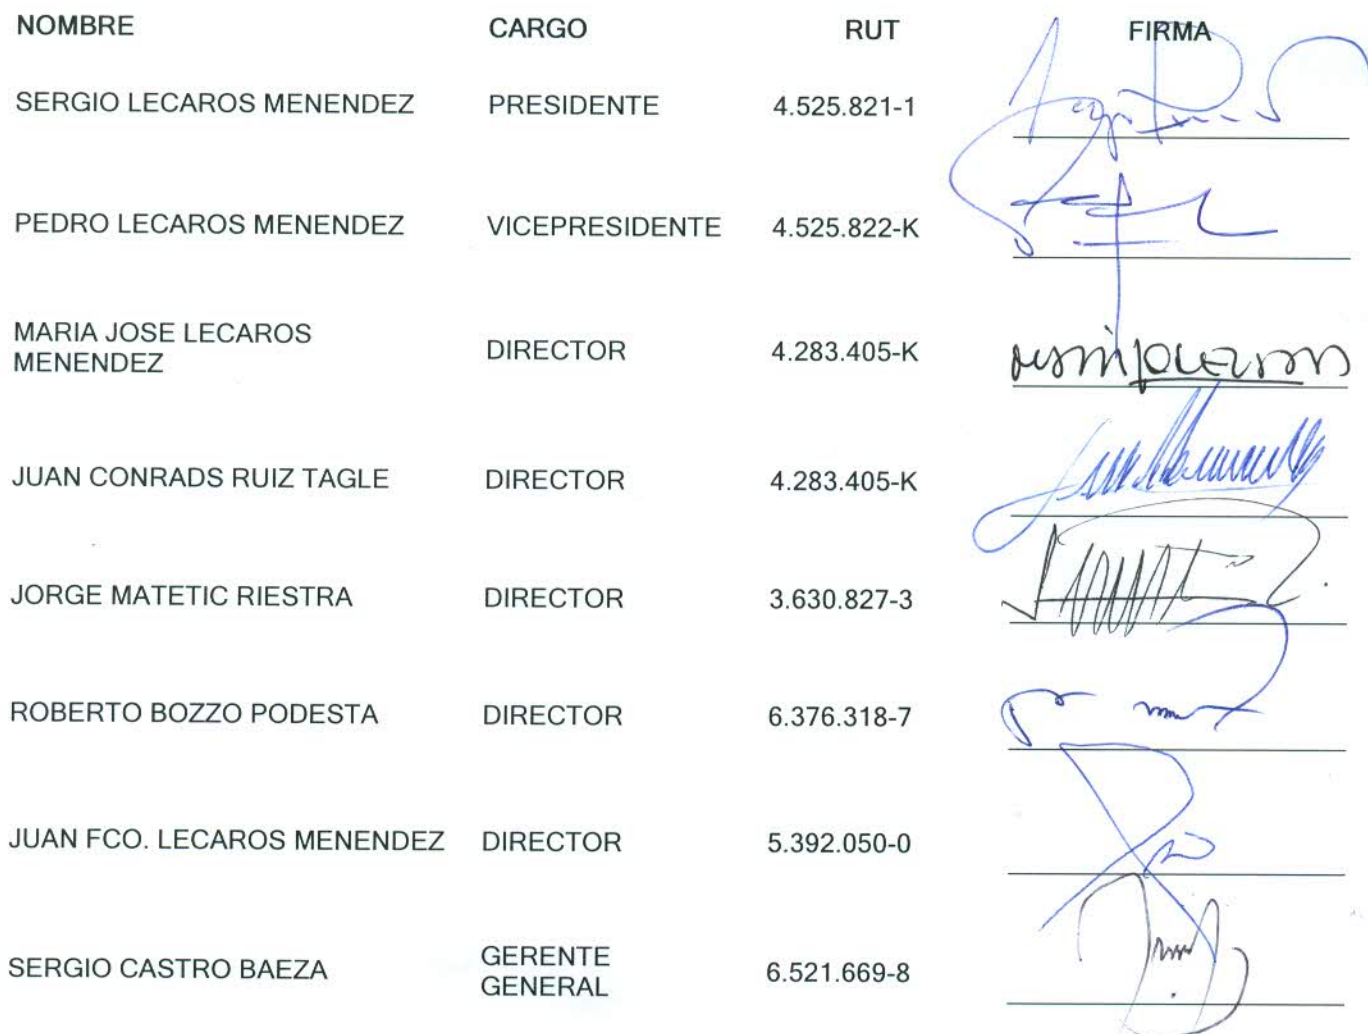 NOMBRE CARGO RUT FIRMA
SERGIO LECAROS MENENDEZ PRESIDENTE 4.525.821-1
PEDRO LECAROS MENENDEZ VICEPRESIDENTE 4.525.822-K
MARIA JOSE LECAROS
MENENDEZ DIRECTOR 4.283.405-K
JUAN CONRADS RUIZ TAGLE DIRECTOR 4.283.405-K
JORGE MATETIC RIESTRA DIRECTOR 3.630.827-3
ROBERTO BOZZO PODESTA DIRECTOR 6.376.318-7
JUAN FCO. LECAROS MENENDEZ DIRECTOR 5.392.050-0
SERGIO CASTRO BAEZA GERENTE
GENERAL 6.521.669-8